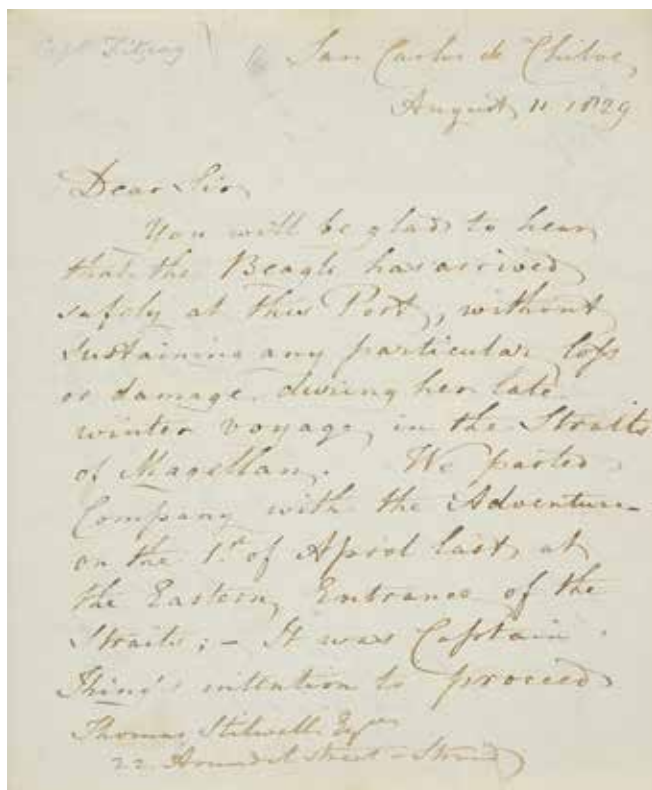 Capt Fitzroy
San Carlos de Chiloe
August 11 1829
Dear Sir
You will be glad to hear
that the Beagle has arrived
safely at this Port, without
sustaining any particular loss
or damage during her late
winter voyage in the Straits
of Magellan. We parted
Company with the Adventure
on the 1st of April last at
the Eastern Entrance of the
Straits; – It was Captain
King's intention to proceed
Thomas Stilwell Esqre
22 Arundel Street – Strand